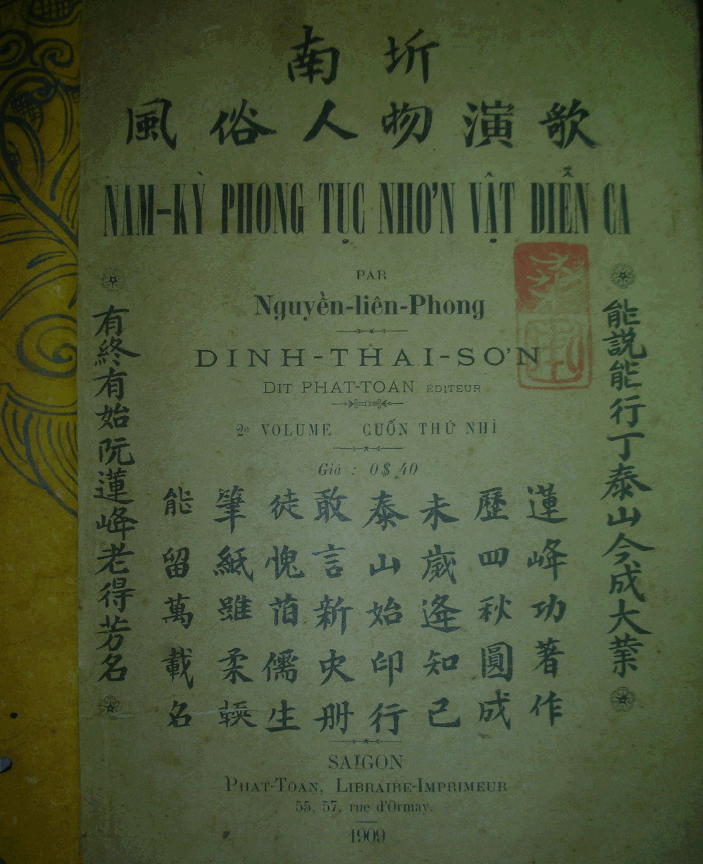 南圻
風俗人物演歌
NAM-KỲ PHONG TỤC NHƠN VẬT DIỄN CA
PAR
Nguyễn-liên-Phong
DINH-THAI-SƠN
DIT PHAT-TOAN ÉDITEUR
2e VOLUME CUỐN THỨ NHÌ
Giá : 0$ 40
能説能行丁泰山今成大業
有終有始阮蓮峰老得芳名
蓮峰功著作
歷四秋圓成
未歲逢知己
泰山始印行
敢言新史册
徒愧舊儒生
筆紙雖柔軟
能留萬載名
SAIGON
PHAT-TOAN, LIBRAIRE-IMPRIMEUR
55, 57, rue d'Ormay.
1909